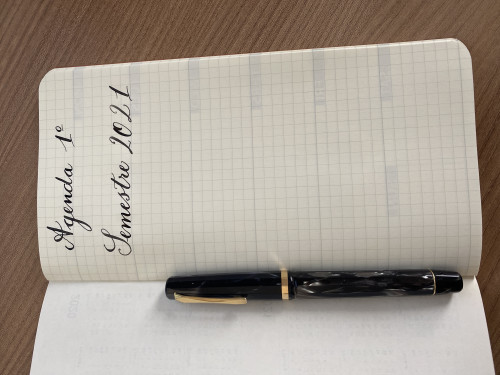 Agenda 1º
Semestre 2021